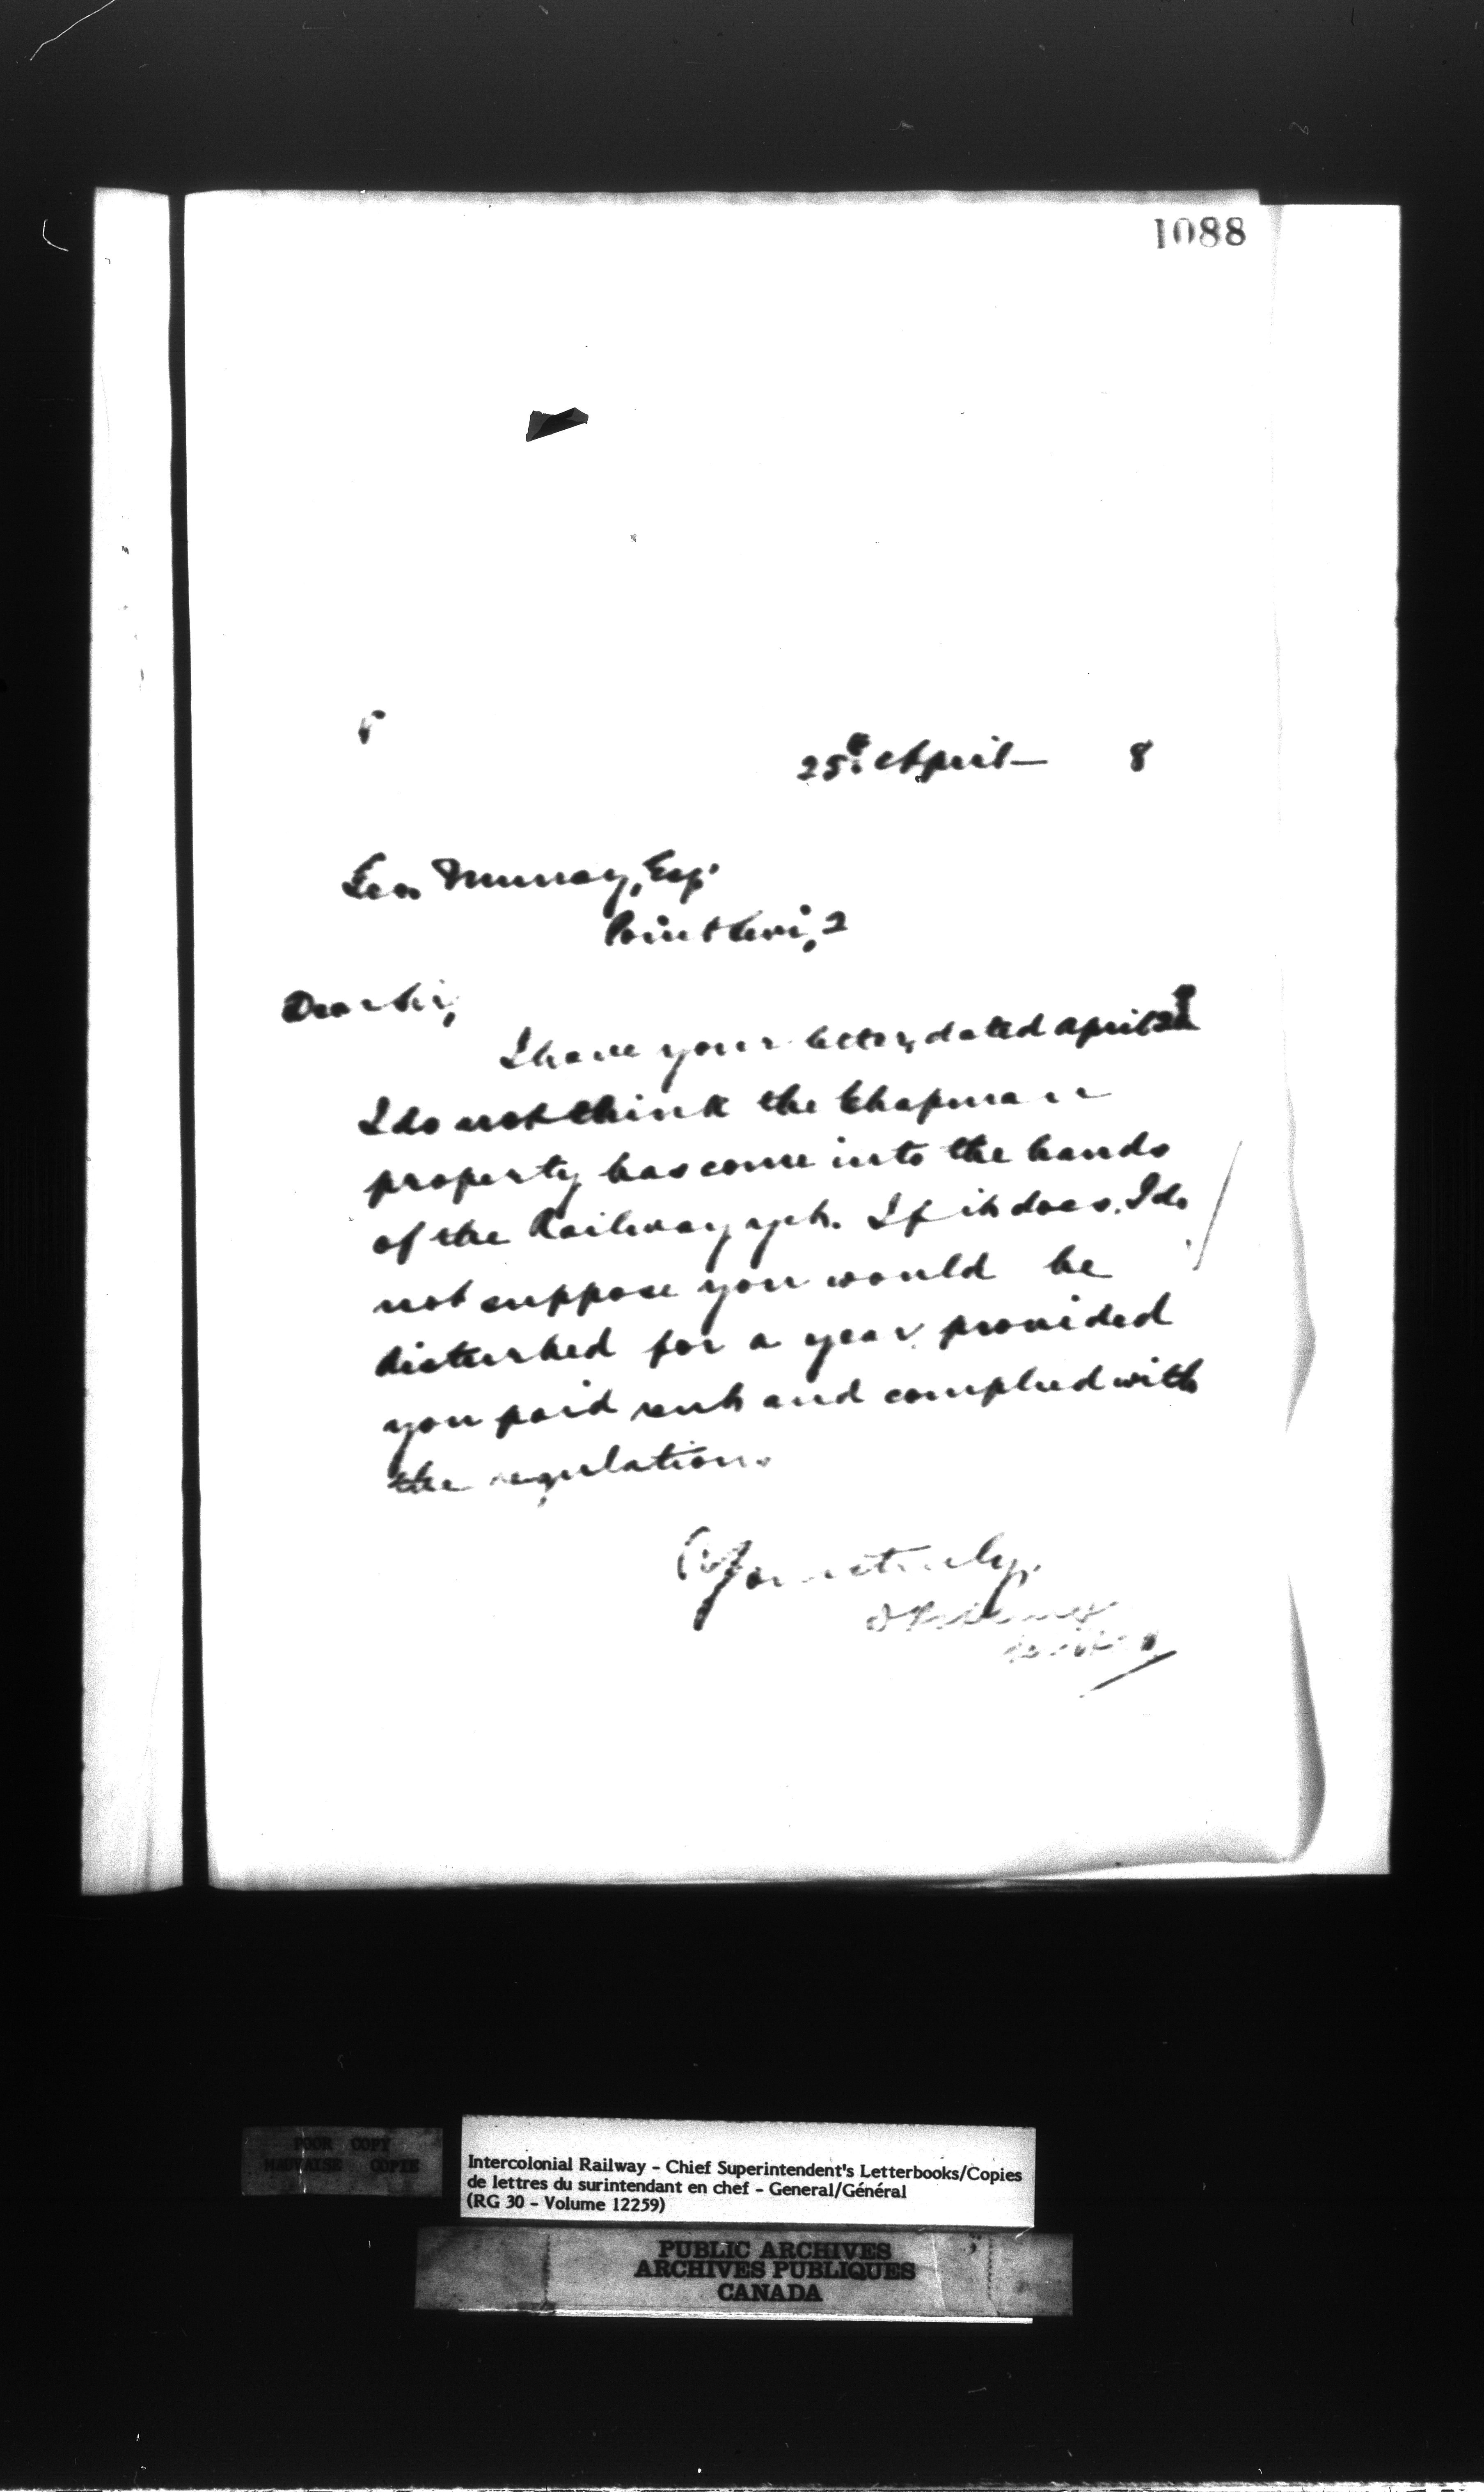 1088
25th April 8
Geo Murray, Esq.
Point Levi, 2
Dear Sir,
I have your letter, dated April
I do not think the Chapman
property has come into the hands
of the Railway yet. If it does, I do
not suppose you would be
disturbed for a year provided
you paid rent and complied with
the regulations.
Yours truly,
POOR COPY
MAUVAISE COPIE
Intercolonial Railway - Chief Superintendent's Letterbooks/Copies
de lettres du surintendant en chef - General/Général
(RG 30 - Volume 12259)
PUBLIC ARCHIVES
ARCHIVES PUBLIQUES
CANADA